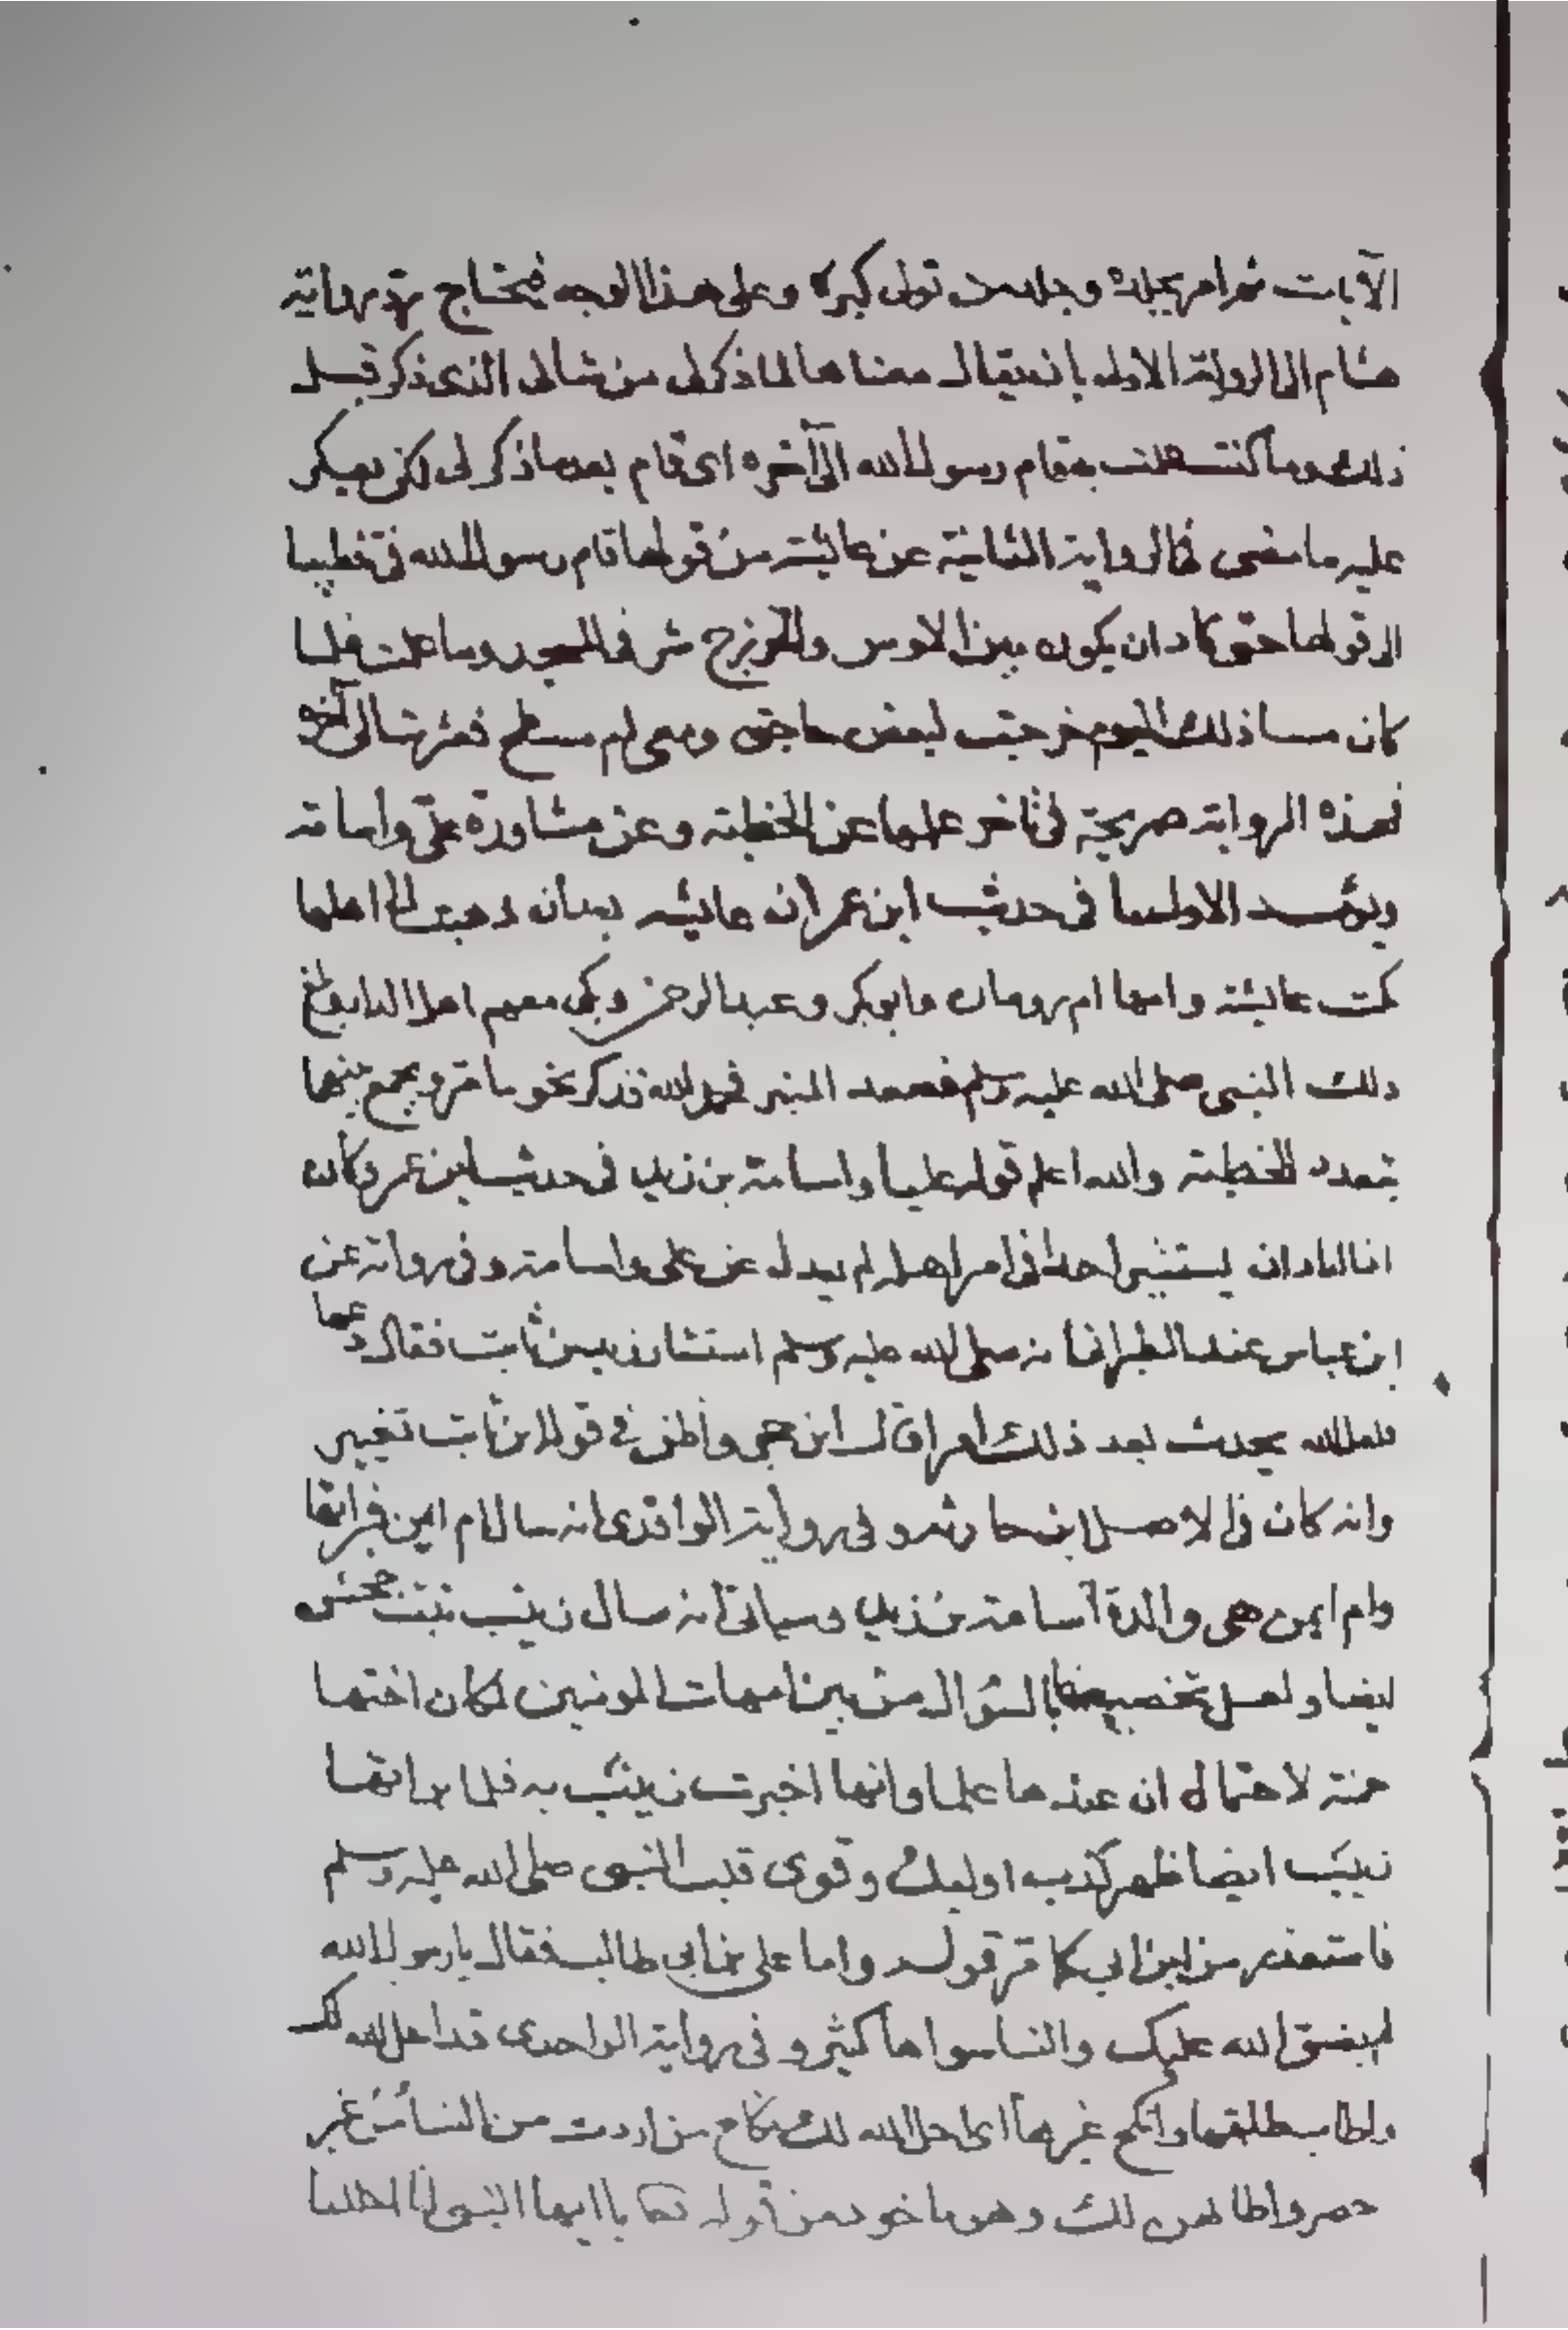 الآيات ثم امر بجلده وجلد من تولى كبره وعلى هذا الوجه فيحتاج برد رواية
هشام الى الرواية الاولى بان يقال معناها لما ذكر لى من شانى الذى ذكر قبل
ذلك وما كنت علمت به قام رسول الله الى آخره اى قام بعد ما ذكر لى لكن يعكر
عليه ما مضى فى الرواية الثانية عن عايشة من قولها قام رسول الله فى خطيبا
الى قولها حتى كاد ان يكون بين الاوس والخزرج شر فى المسجد وما علمت فلما
كان مسا ذلك اليوم خرجت لبعض حاجتى ومعى ام مسطح فعثرت الى آخره
فهذه الرواية صريحة فى تاخر علمها عن الخطبة وعن مشاورة على واسامة
ويؤيد الاول ما فى حديث ابن عمر ان عايشه بعد ان ذهبت الى اهلها
بكت عايشة وامها ام رومان وابو بكر وعبد الرحمن وبكى معهم اهل الدار وبلغ
ذلك النبى صلى الله عليه وسلم فصعد المنبر فحمد الله فذكر نحو ما مر ويجمع بينهما
بتعدد الخطبة والله اعلم قوله عليا واسامة بن زيد فى حديث ابن عمر وكان
اذا اراد ان يستشير احدا فى امر اهله لم يعدل عن على واسامة وفى رواية عن
ابن عباس عند الطبرانى انه صلى الله عليه وسلم استشار زيد بن ثابت فقال دعها
فلعل الله يحدث بعد ذلك امرا قال ابن حجر واظن فى قوله ابن ثابت تغيير
وانه كان فى الاصل ابن حارثه وفى رواية الواقدى انه سال ام ايمن فبراتها
وام ايمن هى والدة اسامة بن زيد وسياتى انه سال زينب بنت جحش
ايضا ولعل تخصيصها بالسؤال من بين امهات المومنين لكان اختها
حمنة لاحتمال ان عندها علما وانها اخبرت زينب به فلما براتها
زينب ايضا ظهر كذب اوليك وقوى قلب النبى صلى الله عليه وسلم
فاستعذر من ابن ابى كما مر قوله واما على بن ابى طالب فقال يا رسول الله
لم يضق الله عليك والنسا سواها كثير وفى رواية الواحدى قد احل الله لك
واطاب طلقها وانكح غيرها اى احل الله لك نكاح من اردت من النسا من غير
حصر واطابهن لك وهو ماخوذ من قوله تعا يا ايها النبى انا احللنا